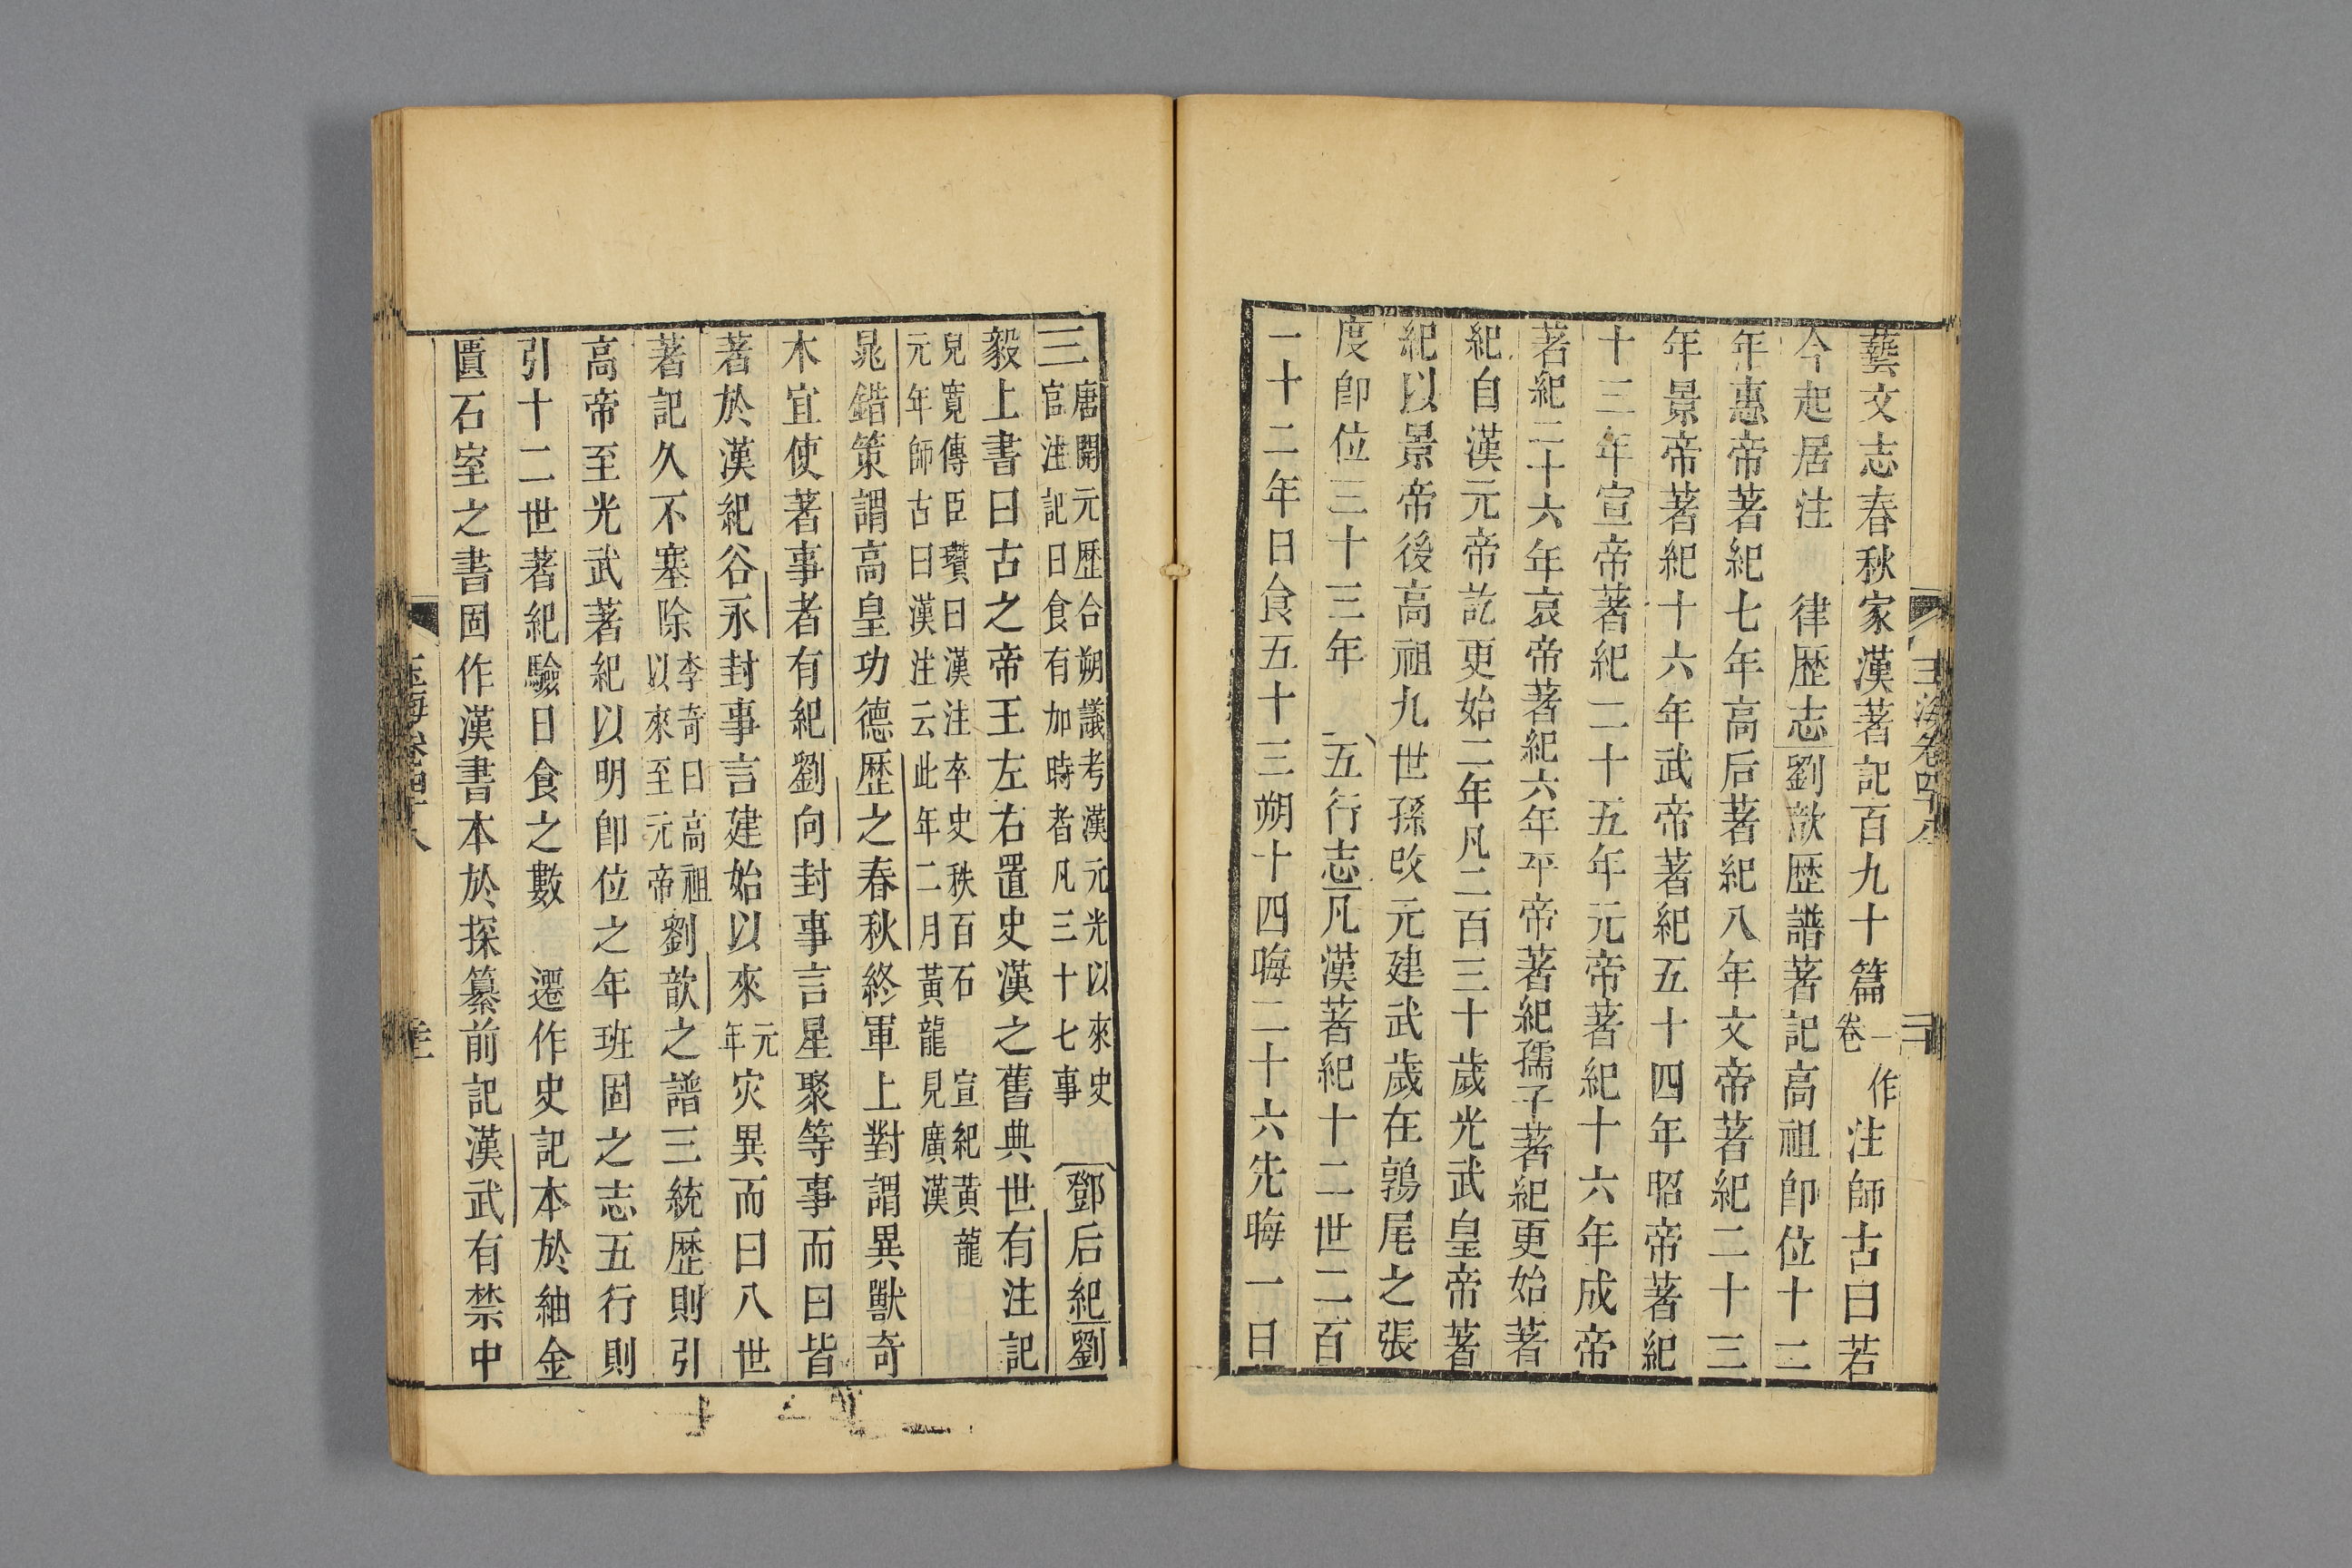 藝文志春秋家漢著記百九十篇一作卷注師古曰若
今起居注 律歷志劉歆歷譜著記高祖即位十二
年惠帝著紀七年高后著紀八年文帝著紀二十三
年景帝著紀十六年武帝著紀五十四年昭帝著紀
十三年宣帝著紀二十五年元帝著紀十六年成帝
著紀二十六年哀帝著紀六年平帝著紀孺子著紀更始著
紀自漢元帝訖更始二年凡二百三十歲光武皇帝著
紀以景帝後高祖九世孫改元建武歲在鶉尾之張
度即位三十三年 五行志凡漢著紀十二世二百
一十二年日食五十三朔十四晦二十六先晦一日
三唐開元歷合朔議考漢元光以來史官注記日食有加時者凡三十七事 鄧后紀劉
毅上書曰古之帝王左右置史漢之舊典世有注記
兒寬傳臣瓚曰漢注卒史秩百石 宣紀黃龍元年師古曰漢注云此年二月黃龍見廣漢
鼂錯策謂高皇功德歷之春秋終軍上對謂異獸奇
木宜使著事者有紀劉向封事言星聚等事而曰皆
著於漢紀谷永封事言建始以來元年灾異而曰八世
著記久不塞除李奇曰高祖以來至元帝劉歆之譜三統歷則引
高帝至光武著紀以明即位之年班固之志五行則
引十二世著紀驗日食之數 遷作史記本於紬金
匱石室之書固作漢書本於探纂前記漢武有禁中